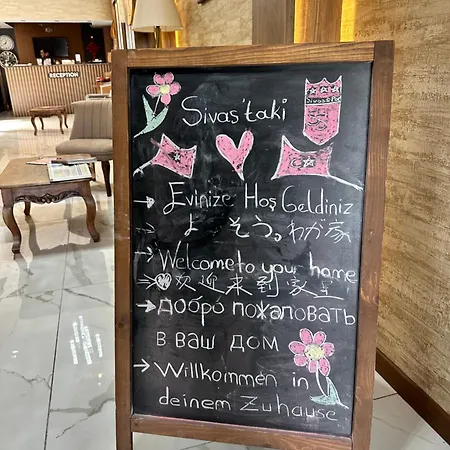 RECEPTION
Sivas'taki
Sivasspor
→ Evinize Hoş Geldiniz
よ そう。わが家
→ Welcome to you home
→ 欢迎来到家里
→ Добро пожаловать
в ваш дом
→ Willkommen in
deinem Zuhause